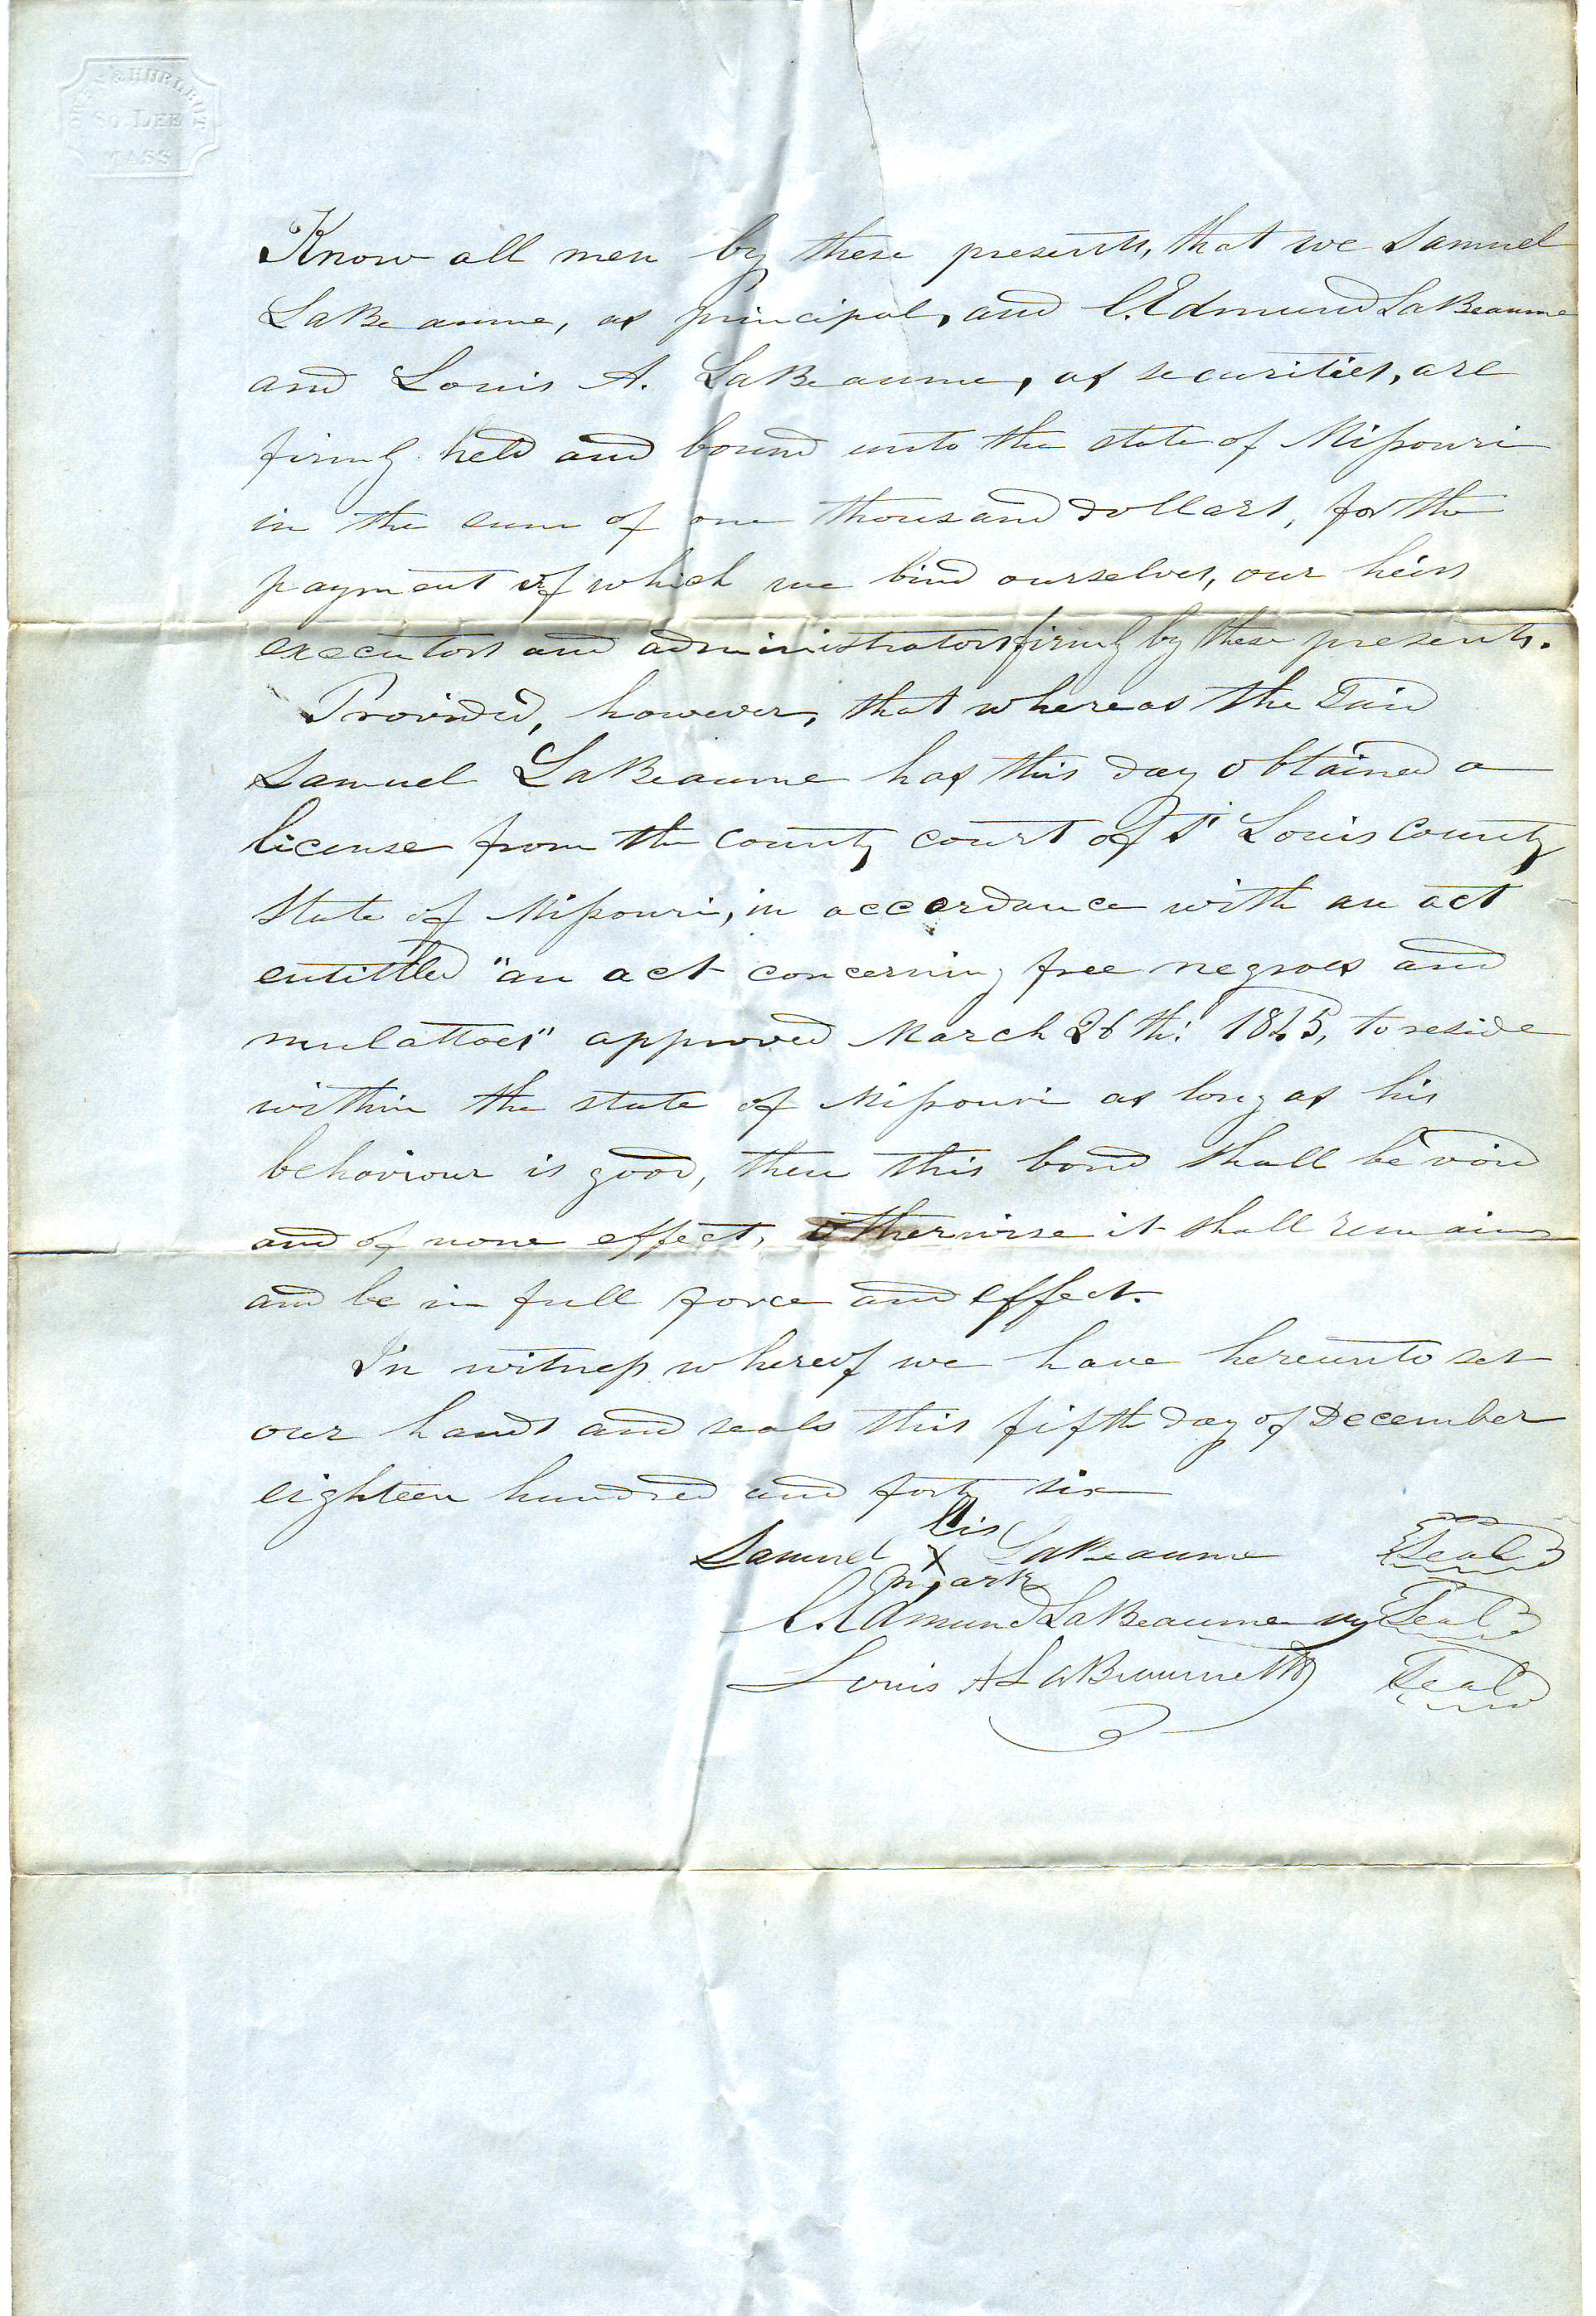 OWEN & HURLBUT
SO. LEE
MASS
Know all men by these presents, that we Samuel
LaBeaume, as principal, and C. Edmund LaBeaume
and Louis A. LaBeaume, as securities, are
firmly held and bound unto the state of Missouri
in the sum of one thousand dollars, for the
payment of which we bind ourselves, our heirs
executors and administrators firmly by these presents.
Provided, however, that whereas the said
Samuel LaBeaume has this day obtained a
license from the County court of St Louis County
State of Missouri, in accordance with an act
entittled "an act concerning free negroes and
mulattoes" approved March 26th: 1845, to reside
within the state of Missouri as long as his
behaviour is good, then this bond shall be void
and of none effect, otherwise it shall remain
and be in full force and effect.
In witness whereof we have hereunto set
our hands and seals this fifth day of December
eighteen hundred and forty six
his
Samuel X LaBeaume Seal
mark
C. Edmund LaBeaume Seal
Louis A LaBeaume Seal